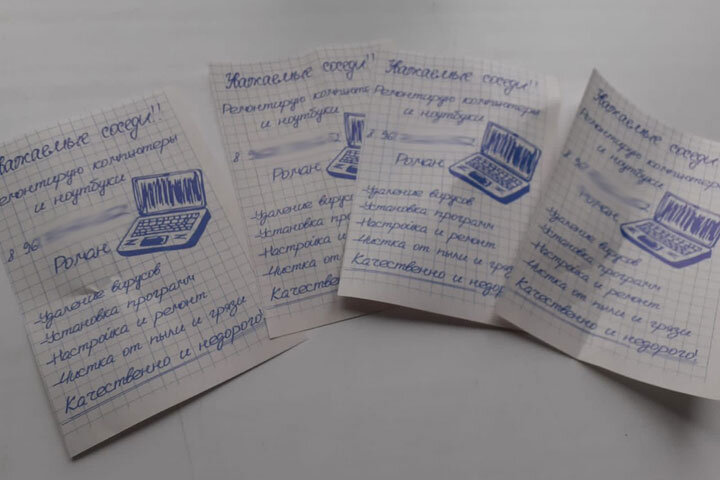 Уважаемые соседи!!
Ремонтирую компьютеры
и ноутбуки
8 96
Роман
-Удаление вирусов
-Установка программ
-Настройка и ремонт
-Чистка от пыли и грязи
Качественно и недорого!
Уважаемые соседи!!
Ремонтирую компьютеры
и ноутбуки
8
Роман
-Удаление
-Установка
-Настройка и
-Чистка от
Качественно
Уважаемые соседи!!
Ремонтирую компьютеры
и ноутбуки
8 96
Роман
-Удаление вирусов
-Установка программ
-Настройка и ремонт
-Чистка от пыли и грязи
Качественно и недорого!
Уважаемые соседи!!
Ремонтирую компьютеры
и ноутбуки
8 96
Роман
-Удаление вирусов
-Установка программ
-Настройка и ремонт
-Чистка от пыли и грязи
Качественно и недорого!